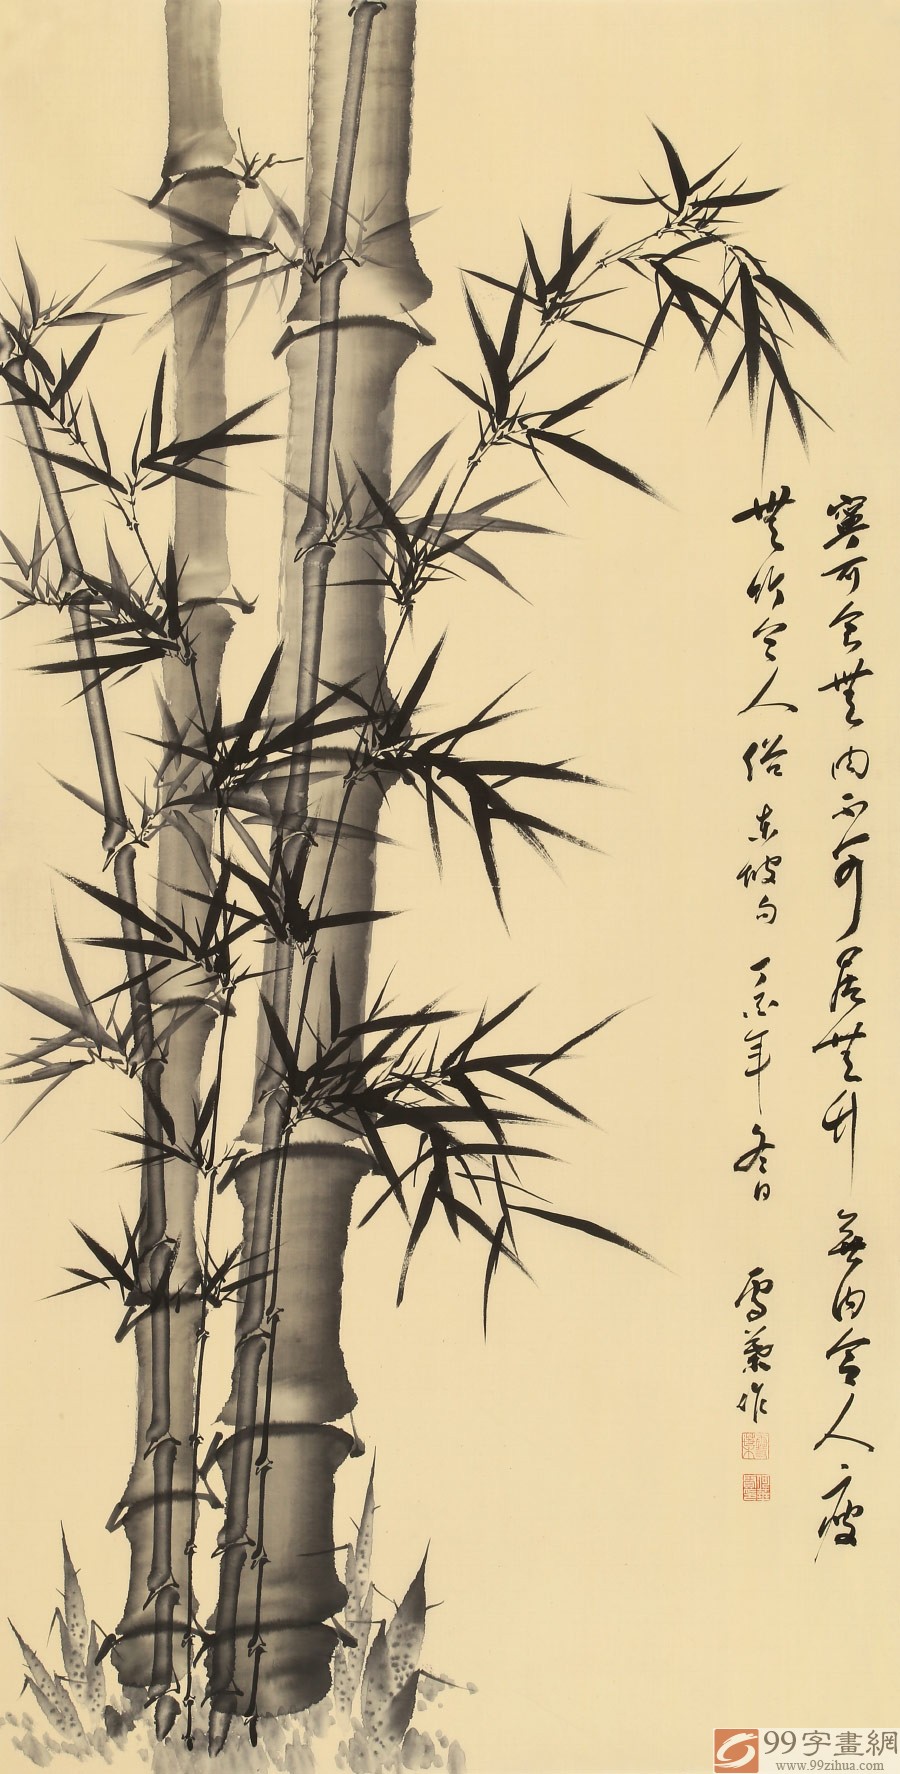 寧可食無肉不可居無竹無肉令人瘦
無竹令人俗 東坡句 丁年冬日 雪作
99字畫網
www.99zihua.com